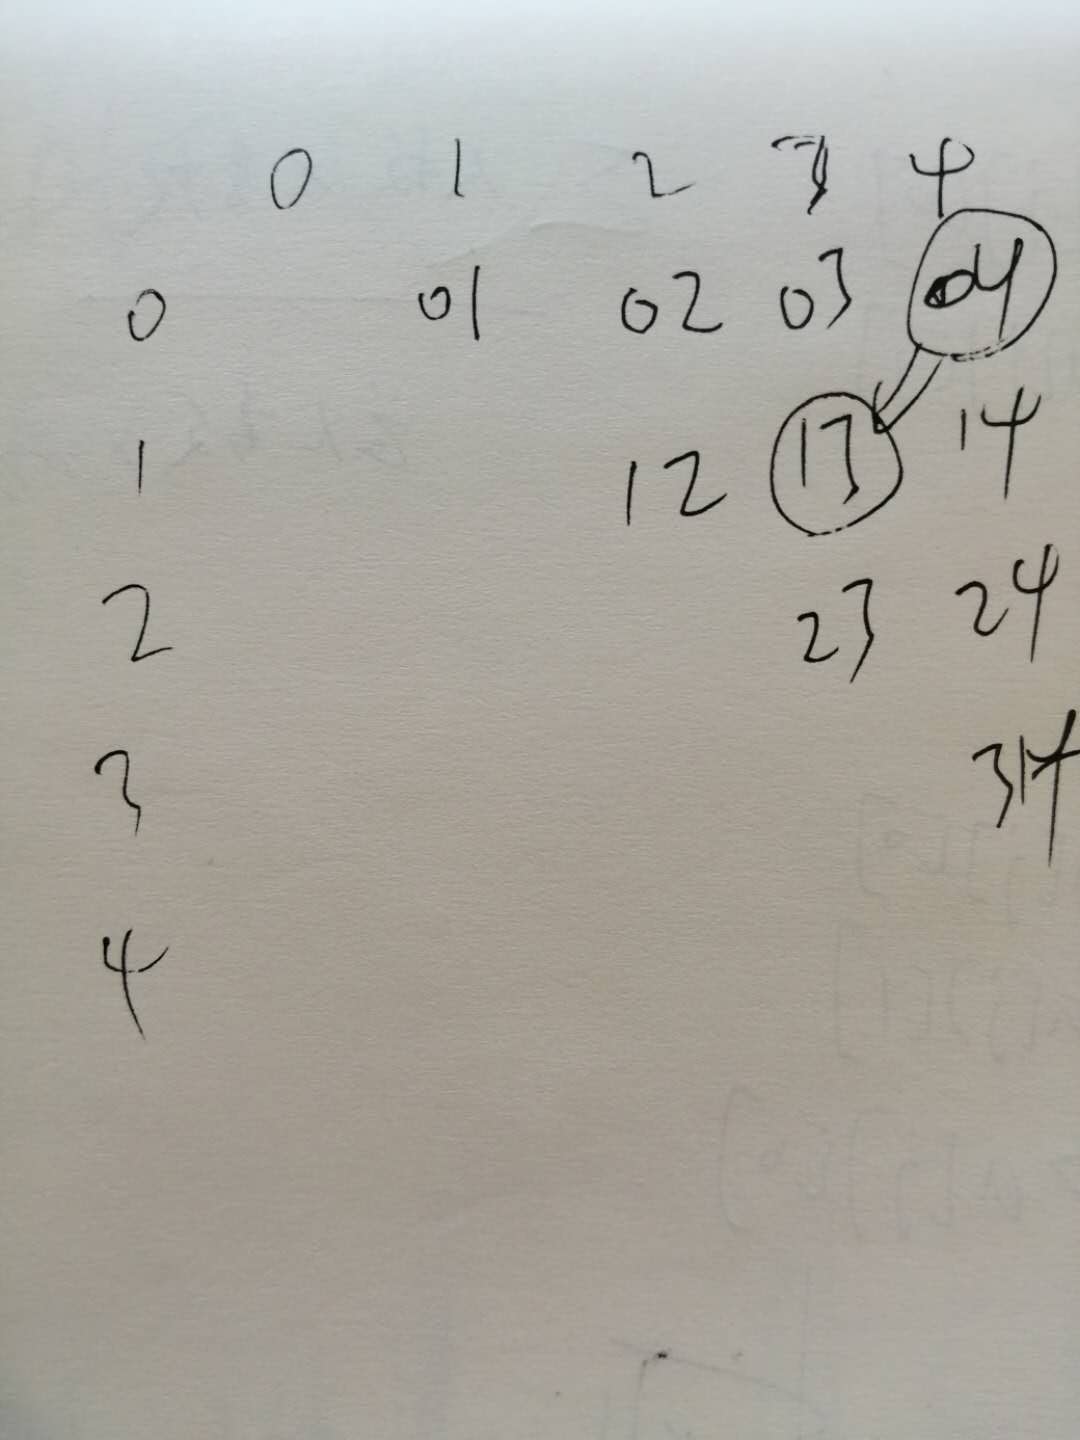 0 1 2 3 4
0 01 02 03 04
1 12 13 14
2 23 24
3 34
4